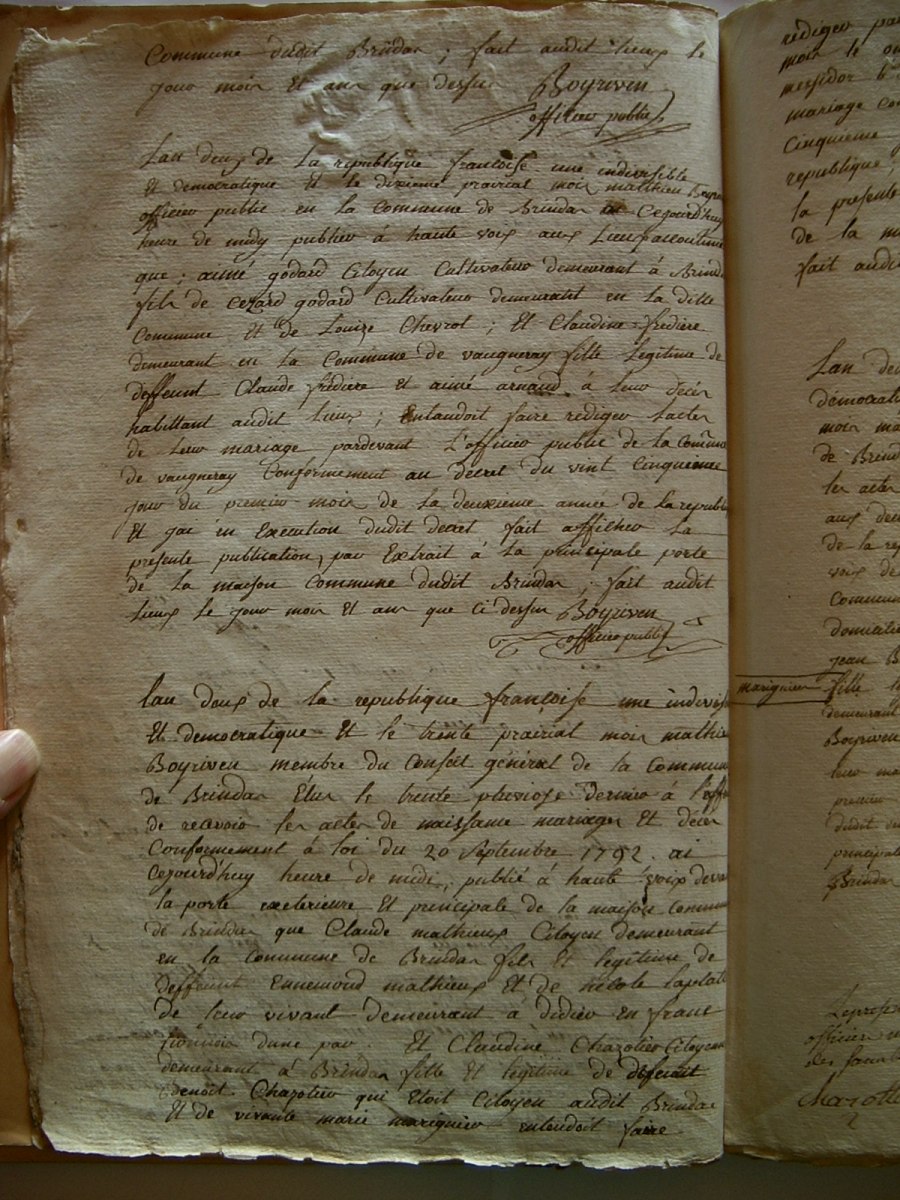 Commune dudit Brindas ; fait audit lieux le
jour mois et an que dessus Boyriven
officier public
Lan deux de La republique françoise une indivisible
Et democratique Et le dixieme prairial moi mathieu Boyri
officier public en la Commune de Brindas ai Cejourd'huy
heure de midy publier à haute voix aux Lieux accoutumé
que ; aimé godard Citoyen Cultivateur demeurant à Brind
fils de Cezard godard Cultivateur demeurant en la ditte
Commune Et de Louize Chevrot ; Et Claudine fredière
demeurant en la Commune de vaugneray fille Legitime de
deffeunt Claude fredière Et aimé arnaud à leur décès
habittant audit lieux ; Entendoit faire rediger lactes
de leur mariage pardevant L'officier public de la Commune
de vaugneray Conformement au decret du vint cinquieme
jour du premier mois de la deuxieme année de la republi
Et jai in Execution dudit decret fait afficher La
presente publication, par Extrait à La principale porte
de la maison Commune dudit Brindas ; fait audit
Lieux le jour mois Et an que ci dessus Boyriven
officier public
lan deux de la republique françoise une indivisi
Et democratique Et le trente prairial moi mathie
Boyriven membre du Conseil général de la Commun
de Brindas Elus le trente pluviose dernier à l'effe
de recevoir les actes de naissance mariages Et décès
Conformement à loi du 20 Septembre 1792. ai
Cejourd'huy heure de midi, publié à haute voix deva
la porte exeterieure Et principale de la maison Commun
de Brindas que Claude mathieux Citoyen demeurant
en la Commune de Brindas fils Et legitime de
deffeunt Ennemond mathieux Et de
de leur vivant demeurant à didier en franc
dune par. Et Claudine Chazotier Citoyen
demeurant à Brindas fille Et legitime de defeunt
benoit Chazotier qui Etoit Citoyen audit Brindas
Et de vivante marie marignier entendoit faire
rediger pa
mois le
messidor
mariage co
Cinquieme
republique
la presente
de la m
fait audi
Lan de
democrati
moi ma
de Brind
les actes
aux
de la rep
voix de
Commun
domicilié
jean B
marignier fille
demeurant
Boyriven
leur ma
premier
dudit
principal
Brindas
officier
Chazotte